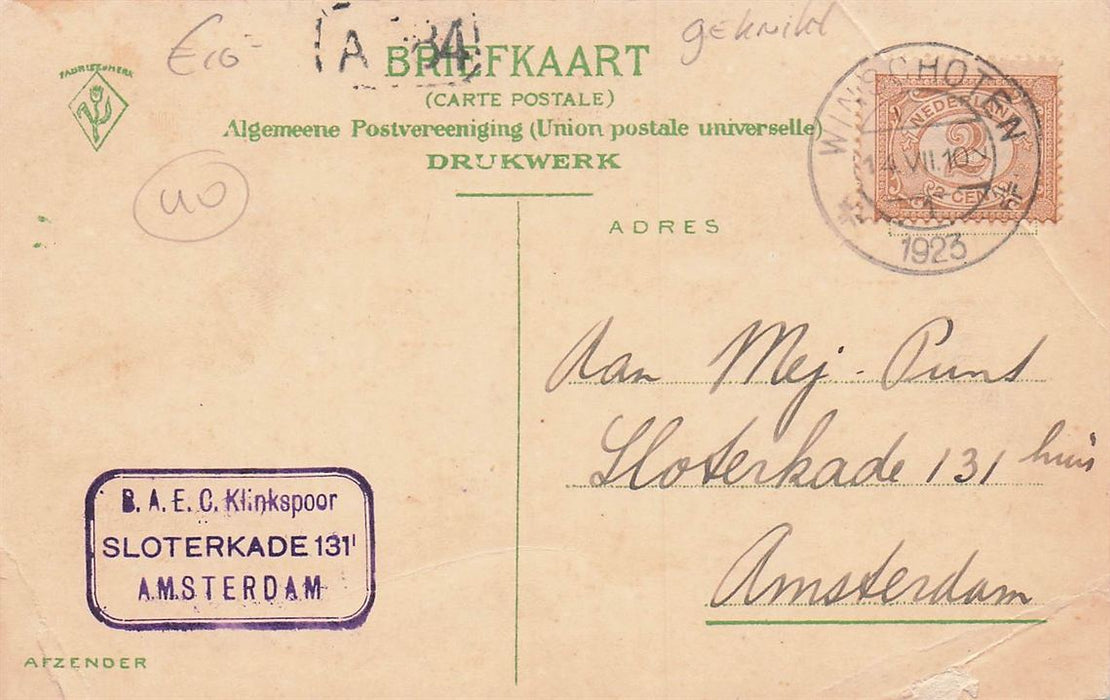 geknikt
A 34
FABRIEKSMERK
BRIEFKAART
(CARTE POSTALE)
Algemeene Postvereeniging (Union postale universelle)
DRUKWERK
WINSCHOTEN
NEDERLAND
2
2 CENT
14.VII.10
1923
110
ADRES
Aan Mej. Punt
Sloterkade 131 huis
Amsterdam
B. A. E. C. Klinkspoor
SLOTERKADE 131'
AMSTERDAM
AFZENDER